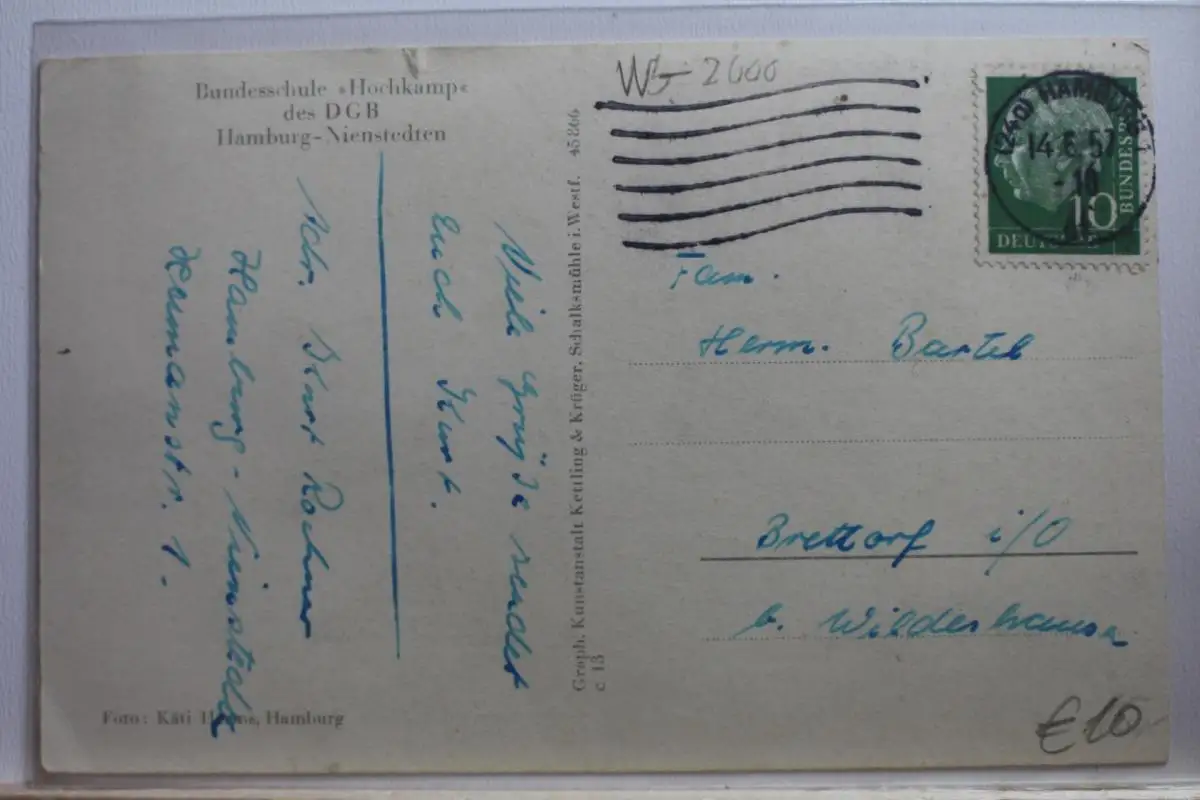 Bundesschule »Hochkamp«
des DGB
Hamburg-Nienstedten
Viele Grüße sendet
Euch Kurt.
Adr. Kurt Rochner
Hamburg-Nienstedten
Hermanstr. 1.
Foto: Käti
Hamburg
Graph. Kunstanstalt Kettling & Krüger, Schalksmühle i. Westf. 45866
c 13
W 2600
(24a) HAMBURG
14.6.57
-10
10
DEUTSCHE
BUNDESPOST
Fam.
Herm. Bartel
Brettorf i/O
b. Wildeshausen
€10